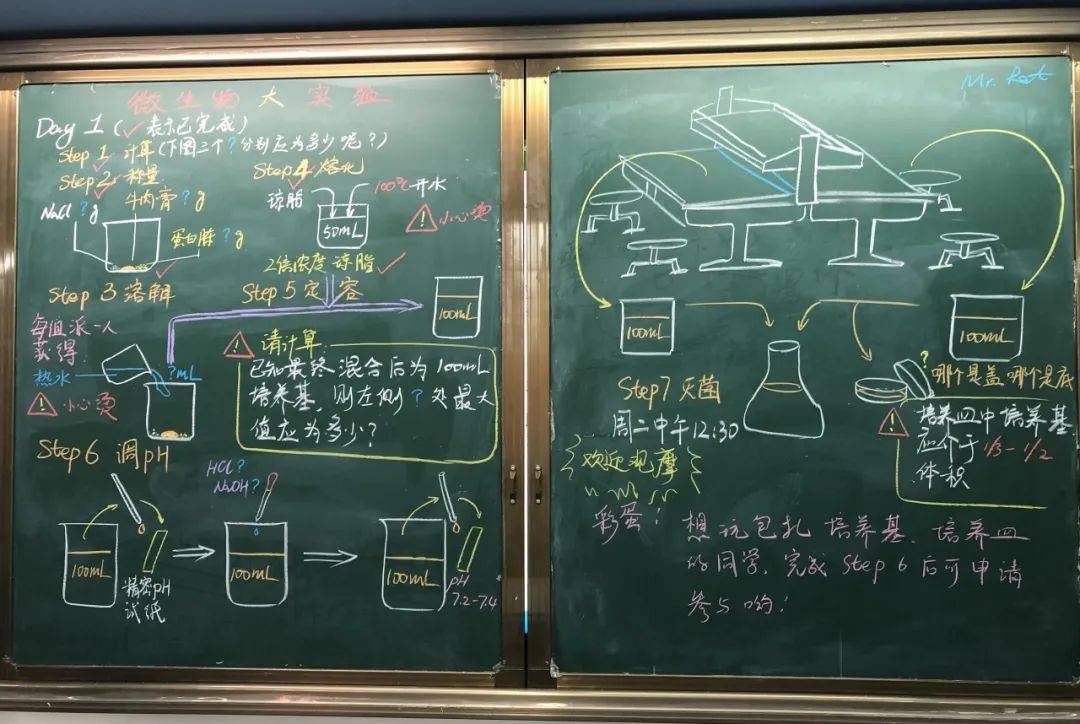 微生物大实验
Day 1 (✓表示已完成)
Step 1 计算(下图三个?分别应为多少呢?)
Step 2 称量
NaCl ?g
牛肉膏 ?g
蛋白胨 ?g
Step 4 熔化
琼脂
100℃开水
50mL
小心烫
2倍浓度琼脂
Step 3 溶解
Step 5 定容
每组派一人
获得:
热水
?mL
小心烫
100mL
请计算:
已知最终混合后为100mL
培养基,则左侧?处最大
值应为多少?
Step 6 调pH
HCl?
NaOH?
100mL
精密pH
试纸
100mL
100mL
pH
7.2-7.4
Mr. 
100mL
100mL
Step 7 灭菌
周二中午12:30
欢迎观摩
?哪个是盖,哪个是底
培养皿中培养基
应介于1/3-1/2
体积
彩蛋!
想玩包扎培养基、培养皿
的同学,完成Step 6后可申请
参与哟!